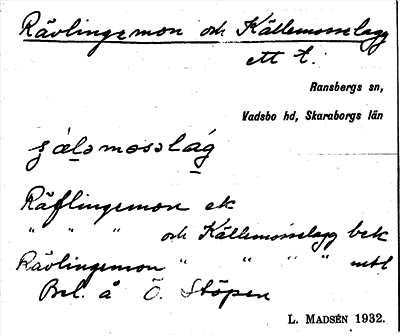 Rävlingemon och Källemosselagg
ett t.
Ransbergs sn,
Vadsbo hd, Skaraborgs län
Räflingemon ek
" " " och Källemosselagg bek
Rävlingemon " " " "
Bel. å Ö. Stöpen
L. MADSÉN 1932.